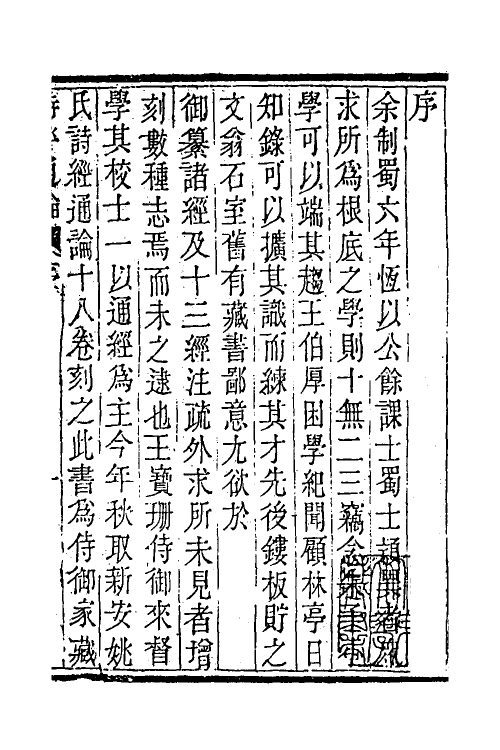 序
余制蜀六年恆以公餘課士蜀士穎異者
求所爲根底之學則十無二三竊念朱子小
學可以端其趨王伯厚困學紀聞顧林亭日
知錄可以擴其識而練其才先後鏤板貯之
文翁石室舊有藏書鄙意尤欲於
御纂諸經及十三經注疏外求所未見者增
刻數種志焉而未之逮也王寶珊侍御來督
學其校士一以通經爲主今年秋取新安姚
氏詩經通論十八卷刻之此書爲侍御家藏